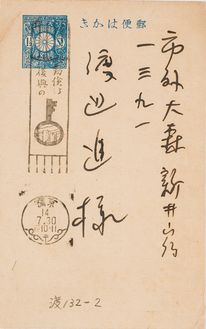 郵便はかき
市外大森新井宿
一三九一
渡辺進様
復興の
14
7.30
渡132-2